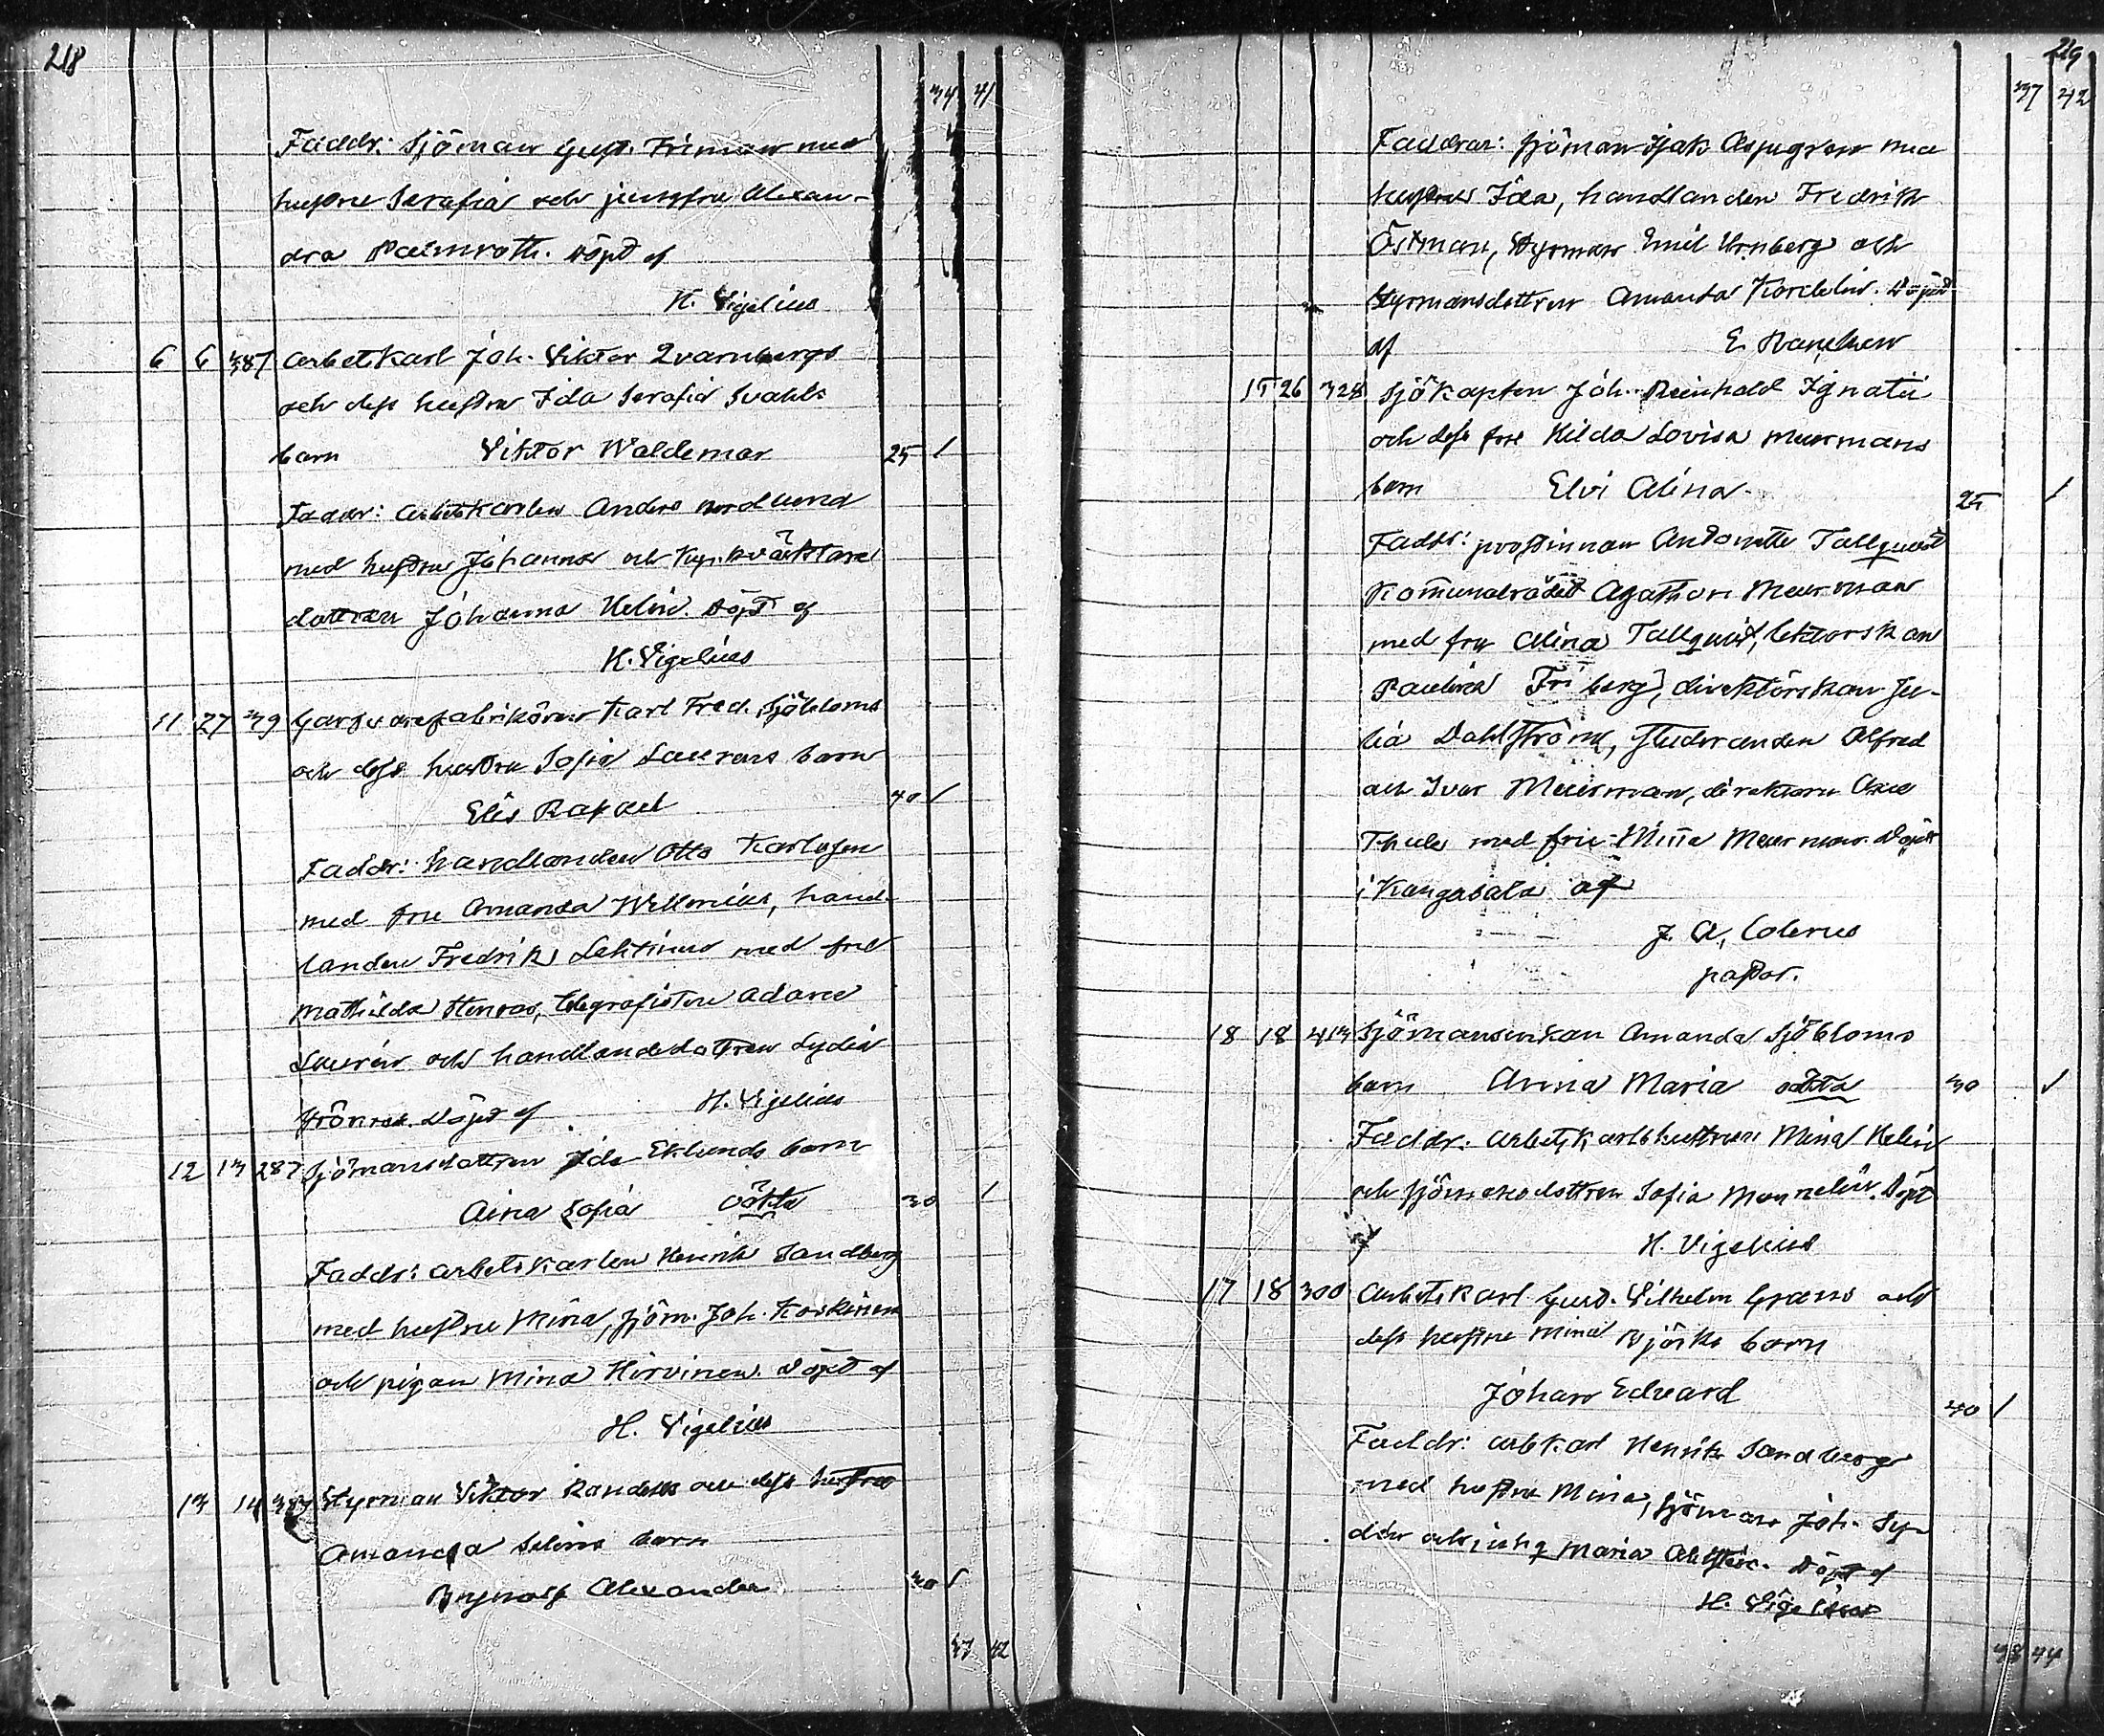 218
34 41
Faddr: Sjöman Gust. Friman med
hustru Serafia och jungfru Alexan-
dra Palmroth. Döpt af
H. Vigelius
6 6 387 Arbetskarl Joh. Viktor Qvarnbergs
och dess hustru Ida Serafia Svahls
barn Viktor Waldemar 25 /
Faddr: arbetskarlen Anders Nordlund
med hustru Johanna och
dottren Johanna Helin. Döpt af
H. Vigelius
11 27 39 Garfvarefabrikören Karl Fred. Sjöbloms
och dess hustru Sofia Laurens barn
Elis Rafael 40 /
Faddr: handlanden Otto Karlsson
med fru Amanda Willenius, hand-
landen Fredrik Lehtinen med fru
Mathilda Stenroos, telegrafisten Adam
Laurén och handlandedottren Lydia
Grönroos. Döpt af H. Vigelius
12 13 287 Sjömansdottren Ida Eklunds barn
Aina Sofia oäkta 30 /
Faddr: arbetskarlen Henrik Sandberg
med hustru Mina, sjöm. Joh. Koskinen
och pigan Mina Hirvinen. Döpt af
H. Vigelius
13 14 Styrman Viktor Randells och dess hustru
Amanda Selins barn
Brynolf Alexander 30 /
37 42
219
37 42
Faddrar: sjöman Isak Aspegren med
hustru Ida, handlanden Fredrik
Östman, styrman Emil Urnberg och
styrmansdottren Amanda Kordelin. Döpt
af E. Rancken
15 26 328 Sjökapten Joh. Reinhold Ignatii
och dess fru Hilda Lovisa Meurmans
barn Elvi Alina. 25 /
Faddr: prostinnan Antonette Tallquist
Komunalrådet Agathon Meurman
med fru Alina Tallquist, lektorskan
Paulina Friberg, direktörskan Ju-
lia Dahlström, studeranden Alfred
och Ivar Meurman, direktorn Axel
Thule med fru Mina Meurman. Döpt
i Kangasala af
J. A. Colerus
pastor.
18 18 413 Sjömansenkan Amanda Sjöbloms
barn Anna Maria oäkta 30 /
Faddr: arbetskarlshustrun Mina Helin
och sjömansdottren Sofia Mannelin. Döpt
af H. Vigelius
17 18 300 Arbetskarl Gust. Vilhelm Grans och
dess hustru Mina Björks barn
Johan Edvard 40 /
Faddr: arb.karl Henrik Sandberg
med hustru Mina, sjöman Joh. Sy-
dén och inhq Maria Döpt af
H. Vigelius
38 44